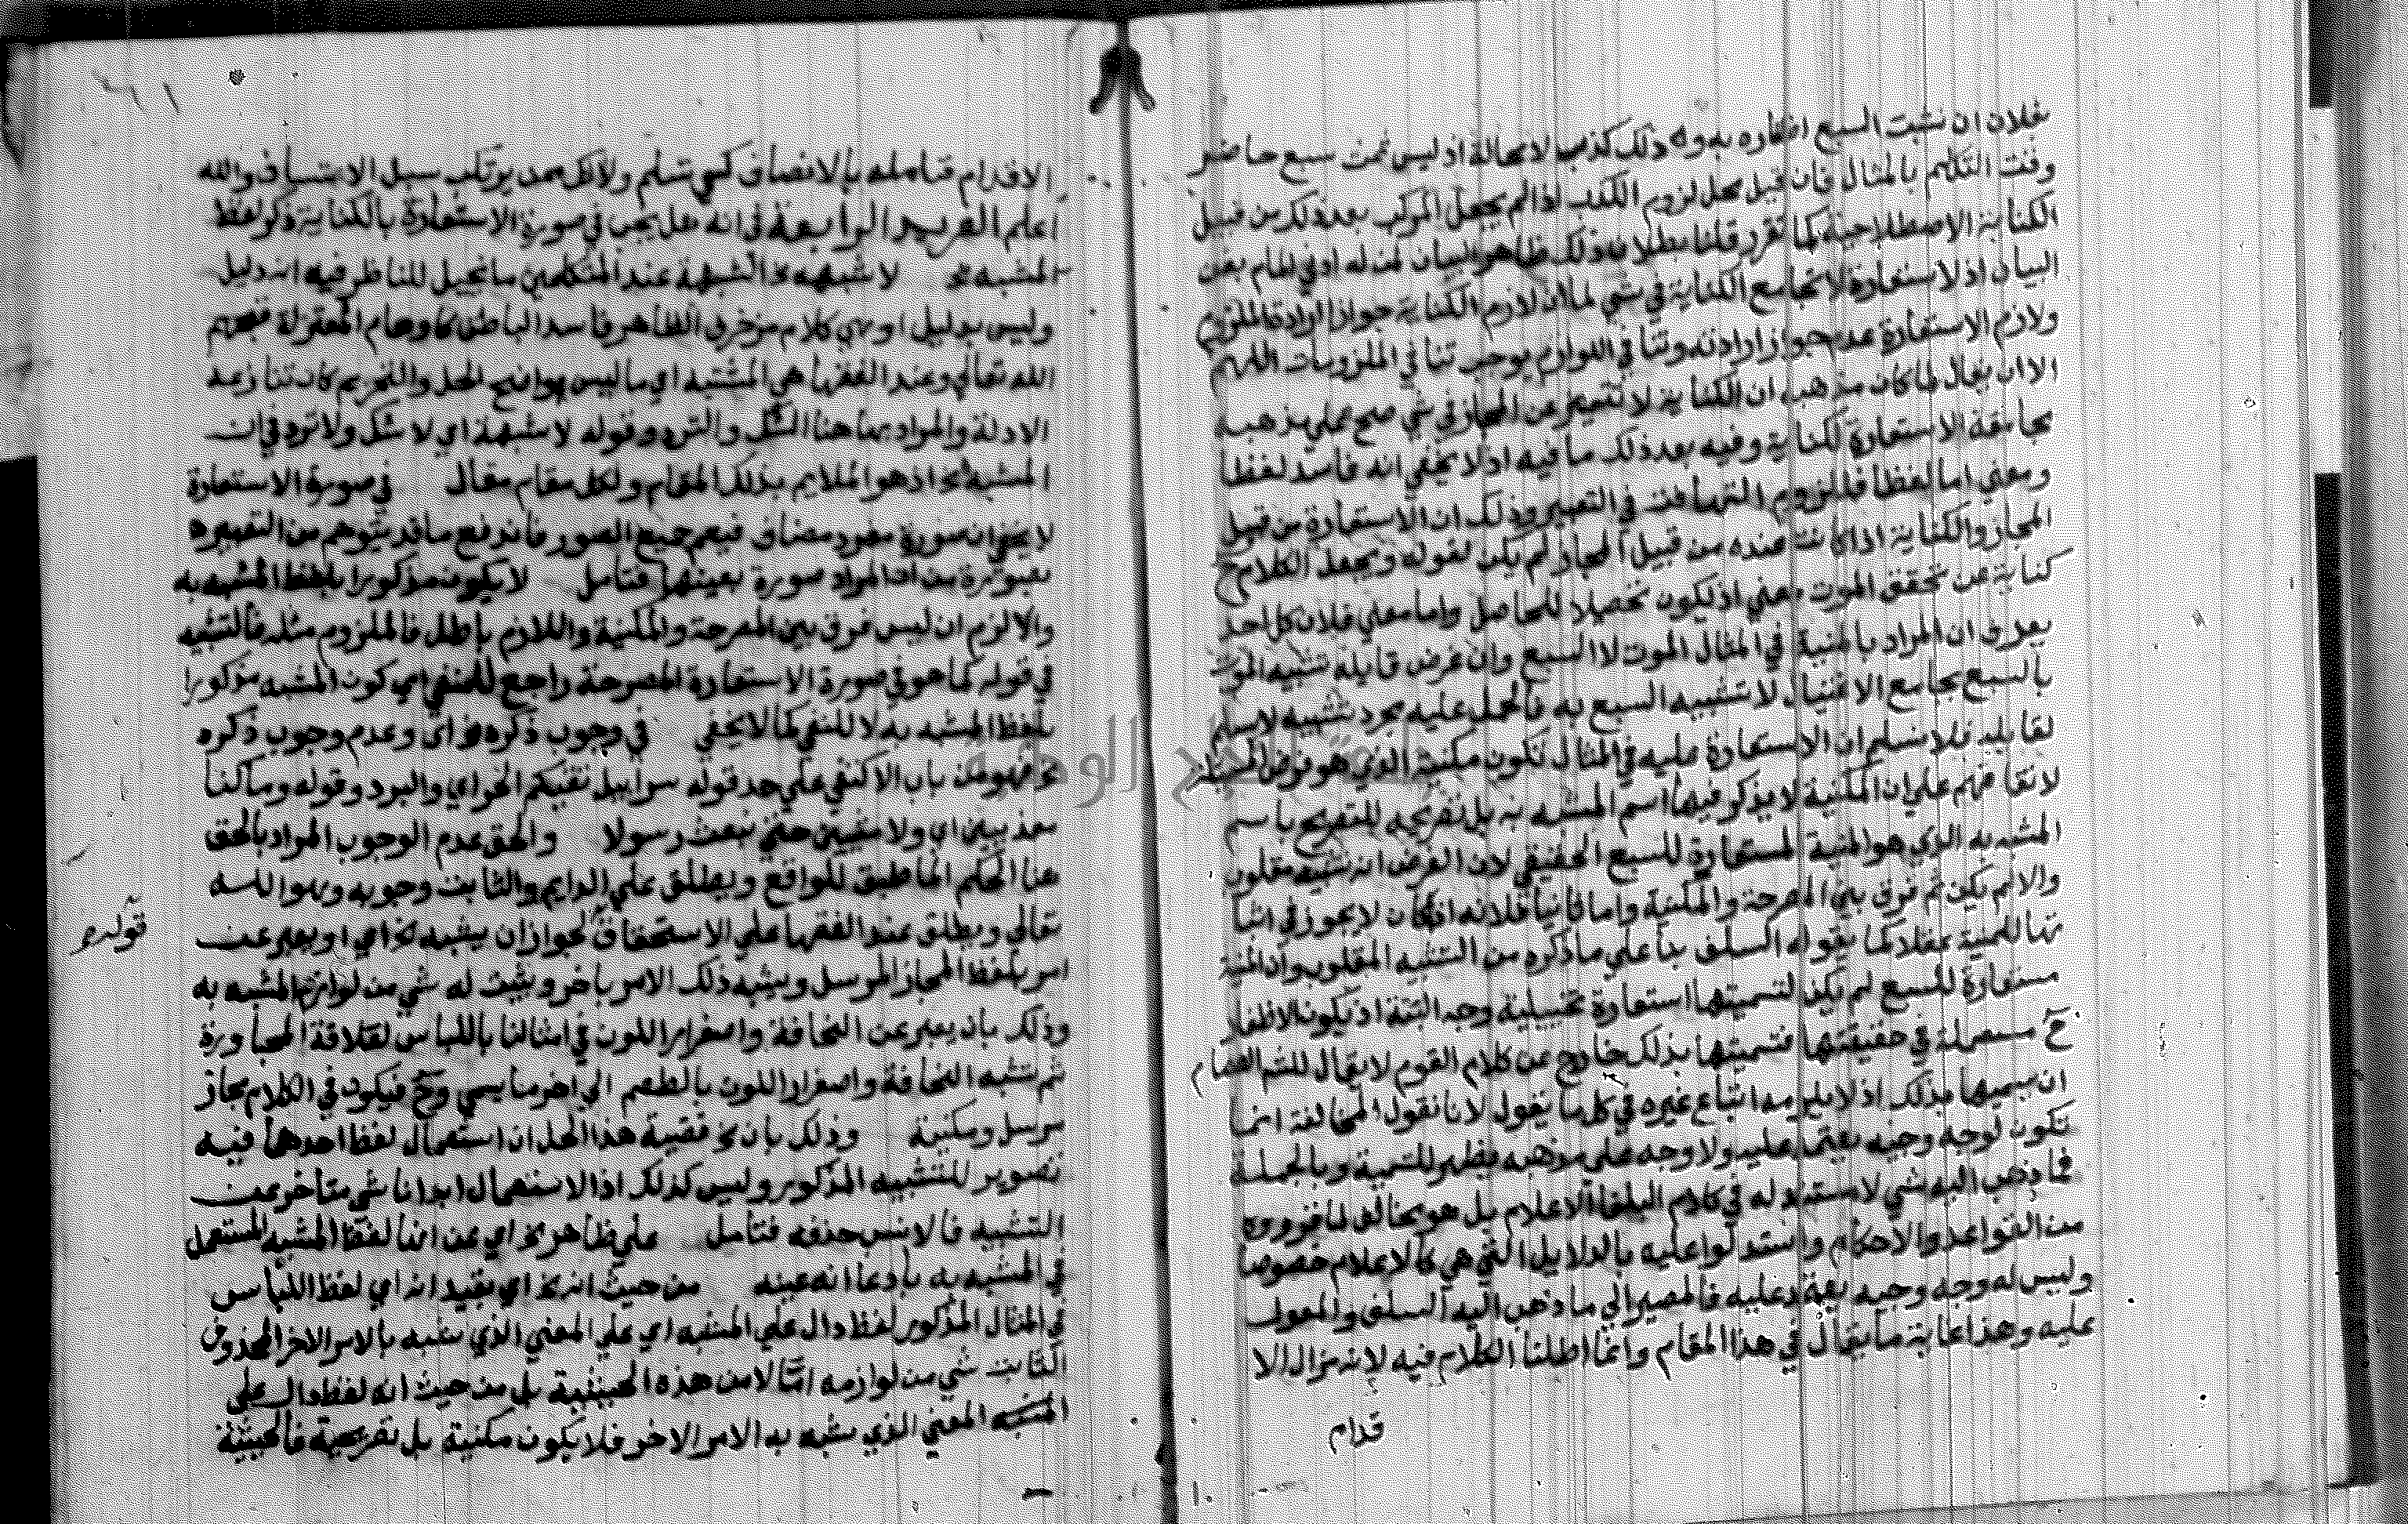 بفلان ان نشبت السبع اظفاره به وكل ذلك كذب لا محالة اذ ليس ثمت سبع حاضر
وقت التكلم بالمثال فان قيل محل لزوم الكذب اذا لم يجعل المركب بعد ذلك من قبيل
الكناية الاصطلاحية كما تقرر قلنا بطلان ذلك ظاهر البيان لمن له ادني المام بفن
البيان اذ الاستعارة لا تجامع الكناية في شي لما ان لازم الكناية جواز ارادة الملزوم
ولازم الاستعارة عدم جواز ارادته وتنافي اللوازم يوجب تنافي الملزومات اللهم
الا ان يقال لما كان مذهبه ان الكناية لا تتميز عن المجاز في شي صح علي مذهبه
مجامعة الاستعارة لكناية وفيه بعد ذلك ما فيه اذ لا يخفي انه فاسد لفظا
ومعني اما لفظا فللزوم التهافت في التعبير وذلك ان الاستعارة من قبيل
المجاز والكناية اذا كانت عنده من قبيل المجاز لم يكن لقوله ويجعل الكلام ح
كناية عن تحقق الموت معني اذ يكون تحصيلا للحاصل واما معني فلان كل احد
يعرف ان المراد بالمنية في المثال الموت لا السبع وان غرض قايله تشبيه الموت
بالسبع بجامع الاغتيال لا تشبيه السبع به فالحمل عليه مجرد تشبيه لا سيما
لقايله فلا نسلم ان الاستعارة عليه في المثال تكون مكنية الذي هو فرض المسيلة
لاتفاقهم علي ان المكنية لا يذكر فيها اسم المشبه به بل تصريحية للتصريح باسم
المشبه به الذي هو المنية المستعارة للسبع الحقيقي لان الفرض انه تشبيه مقلوب
والا لم يكن ثم فرق بين المصرحة والمكنية واما ثانيا فلانه اذا كان لا يجوز في اثبا
تها للمنية عقلا كما يقوله السلف بنا علي ما ذكره من التشبيه المقلوب وان المنية
مستعارة للسبع لم يكن لتسميتها استعارة تخييلية وجه البتة اذ تكون الاظفار
ح مستعملة في حقيقتها فتسميتها بذلك خارج عن كلام القوم لا يقال للشم العصام
ان يسميها بذلك اذ لا يلزمه اتباع غيره في كل ما يقول لانا نقول المخالفة انما
تكون لوجه وجيه يعتمد عليه ولا وجه علي مذهبه يظهر للتسمية وبالجملة
فما ذهب اليه شي لا مستند له في كلام البلغا الاعلام بل هو مخالف لما قرروه
من القواعد والاحكام واستدلوا عليه بالدلايل التي هي كالاعلام خصوصا
وليس له وجه وجيه يعتمد عليه فالمصير الي ما ذهب اليه السلف والمعول
عليه وهذا غاية ما يقال في هذا المقام وانما اطلنا الكلام فيه لانه مزال الا
قدام
الاقدام فتامله بالانصاف كي تسلم ولا تكن ممن يرتكب سبل الاعتساف والله
اعلم الفريد الرابعة في انه هل يجب في صورة الاستعارة بالكناية ذكر لفظ
المشبه لا شبهة الشبهة عند المتكلمين ما تخيل للناظر فيه انه دليل
وليس بدليل او هي كلام مزخرف الظاهر فاسد الباطن كاوهام المعتزلة قبحهم
الله تعالي وعند الفقها هي المشتبه اي ما ليس بواضح الحل والتحريم كان تنازعه
الادلة والمراد بها هنا الشك والتردد وقوله لا شبهة اي لا شك ولا تردد في ان
المشبه اذ هو الملايم بذلك المقام ولكل مقام مقال في صورة الاستعارة
لا يخفي انه صورة مفرد مضاف فيعم جميع الصور فاندفع ما قد يتوهم من التعبير
بصورة من ان المراد صورة بعينها فتامل لا يكون مذكورا بلفظ المشبه به
والا لزم ان ليس فرق بين المصرحة والمكنية واللازم باطل فالملزوم مثله فالتشبيه
في قوله كما هو في صورة الاستعارة المصرحة راجع للمنفي اي كون المشبه مذكورا
بلفظ المشبه به لا للنفي كما لا يخفي في وجوب ذكره اي وعدم وجوب ذكره
فهو من باب الاكتفي علي حد قوله سرابيل تقيكم الحر اي والبرد وقوله وما كنا
معذبين اي ولا مثيبين حتي نبعث رسولا والحق عدم الوجوب المراد بالحق
هنا الحكم المطابق للواقع ويطلق علي الدايم والثابت وجوبه وهو الله
تعالي ويطلق عند الفقها علي الاستحقاق لجواز ان يشبه اي او يعبر عن
قوله
امر بلفظ المجاز المرسل ويشبه ذلك الامر باخر ويثبت له شي من لوازم المشبه به
وذلك بان يعبر عن النحافة واصفرار اللون في امثالنا باللباس لعلاقة المجاورة
ثم تشبه النحافة واصفرار اللون بالطعم الي اخر ما يسمي وح فيكون في الكلام مجاز
مرسل ومكنية وذلك بان قضية هذا الحد ان استعمال لفظ احدهما فيه
تصوير للتشبيه المذكور وليس كذلك اذ الاستعمال ابدانا شي متاخر عن
التشبيه فالانسب حذفه فتامل علي ظاهر اي عن لفظ المشبه المستعمل
في المشبه به بادعا انه عينه من حيث انه اي بقيد انه اي لفظ اللباس
في المثال المذكور لفظ دال علي المشبه اي علي المعني الذي شبه بالامر الاخر المحذوف
الثابت شي من لوازمه اما لا من هذه الحيثية بل من حيث انه لفظ دال علي
المشبه المعني الذي شبه به الامر الاخر فلا يكون مكنية بل تصريحية فالحيثية